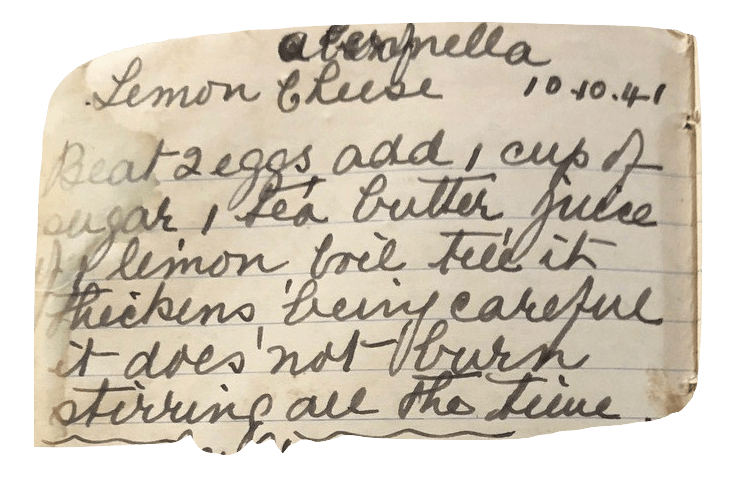 Lemon Cheese 10.10.41
Beat 2 eggs add 1 cup of
sugar 1 tea butter juice
of 1 lemon boil till it
thickens being careful
it does not burn
stirring all the time.